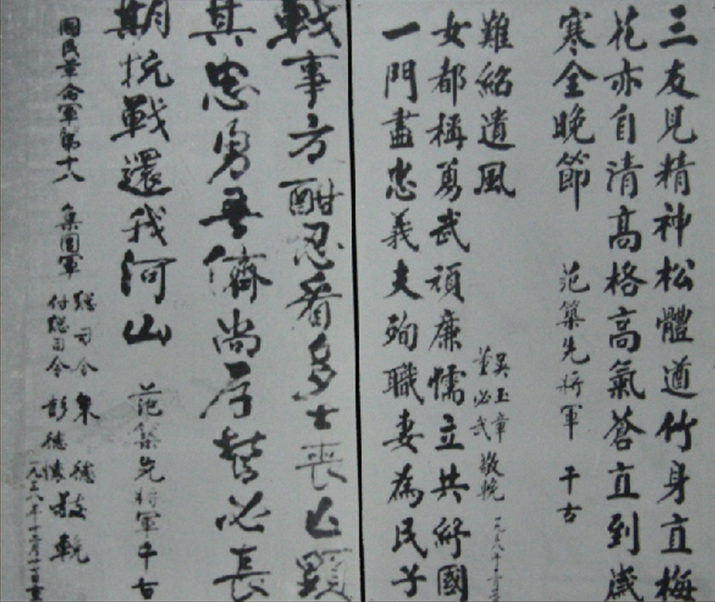 三友見精神松體遒竹身直梅
花亦自清高格高氣蒼直到歲
寒全晚節
范築先將軍 千古
一門盡忠義夫殉職妻為民子
女都稱勇武頑廉懦立共紓國
難紹遺風
吳玉章
董必武 敬輓
戰事方酣忍看多士喪亡顯
其忠勇吾儕尚存誓必長
期抗戰還我河山
范築先將軍千古
國民革命軍第十八 集團軍
總司令 朱 德
付總司令 彭德懷 敬輓